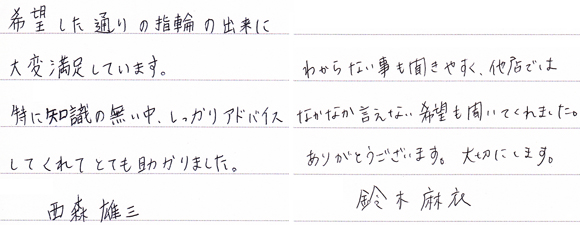 希望した通りの指輪の出来に
大変満足しています。
特に知識の無い中、しっかりアドバイス
してくれてとても助かりました。
西森 雄三
わからない事も聞きやすく、他店では
なかなか言えない希望も聞いてくれました。
ありがとうございます。大切にします。
鈴木 麻衣